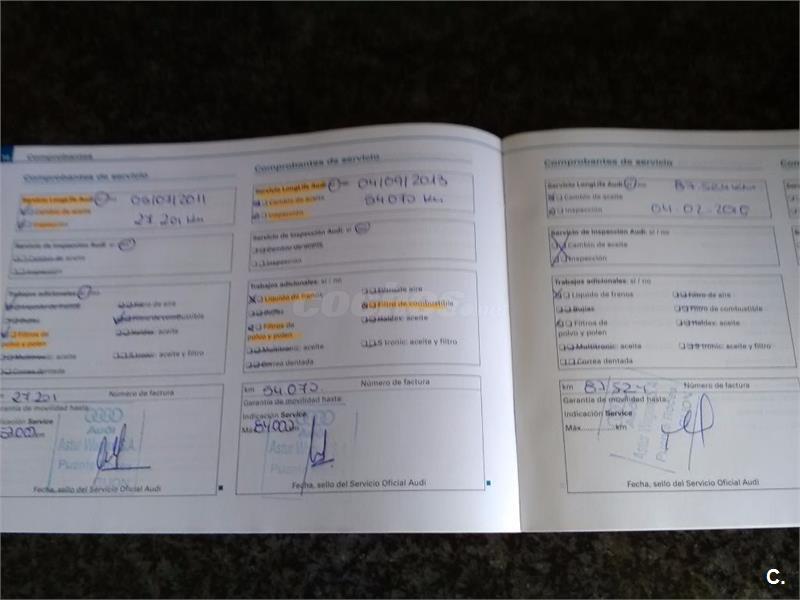 Comprobantes
Comprobantes de servicio
Servicio LongLife Audi no 06/07/2011
Cambio de aceite
Inspección 27.201 km
Servicio de Inspección Audi: si
Cambio de aceite
Inspección
Trabajos adicionales: no
Líquido de frenos
Filtro de aire
Bujías
Filtro de combustible
Filtros de polvo y polen
Haldex: aceite
Multitronic: aceite
S tronic: aceite y filtro
Correa dentada
27201 Número de factura
Garantía de movilidad hasta:
Indicación Service
km
Audi
Fecha, sello del Servicio Oficial Audi
Comprobantes de servicio
Servicio LongLife Audi no 04/09/2013
Cambio de aceite 54.070 km
Inspección
Servicio de Inspección Audi: si
Cambio de aceite
Inspección
Trabajos adicionales: si / no
Líquido de frenos
Filtro de aire
Bujías
Filtro de combustible
Filtros de polvo y polen
Haldex: aceite
Multitronic: aceite
S tronic: aceite y filtro
Correa dentada
km 54.070 Número de factura
Garantía de movilidad hasta:
Indicación Service
Máx. 84.000 km
Audi
Fecha, sello del Servicio Oficial Audi
Comprobantes de servicio
Servicio LongLife Audi no
Cambio de aceite
Inspección
Servicio de Inspección Audi: si / no
Cambio de aceite
Inspección
Trabajos adicionales: si / no
Líquido de frenos
Filtro de aire
Bujías
Filtro de combustible
Filtros de polvo y polen
Haldex: aceite
Multitronic: aceite
S tronic: aceite y filtro
Correa dentada
km Número de factura
Garantía de movilidad hasta:
Indicación Service
Máx. km
Fecha, sello del Servicio Oficial Audi
C.